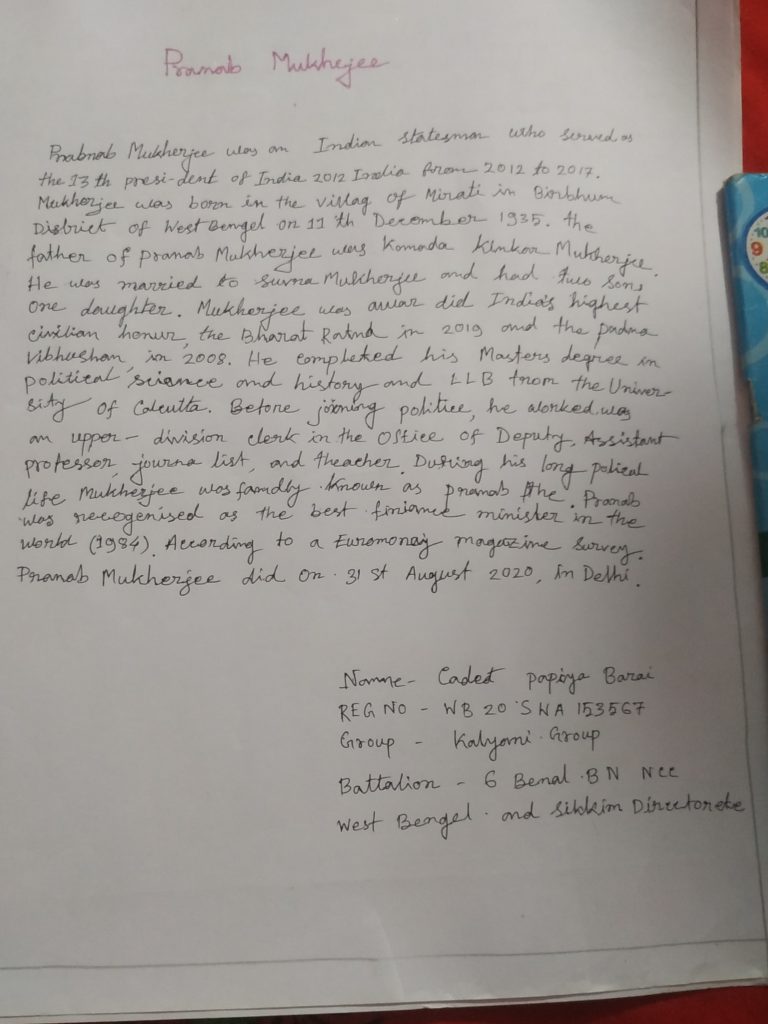 Pranab Mukhejee
Prabnab Mukherjee was an Indian statesman who served as
the 13 th presi-dent of India 2012 India from 2012 to 2017.
Mukherjee was born in the villag of Mirati in Birbhum
District of West Bengel on 11 th December 1935. the
father of pranab Mukherjee was Komada Kinkar Mukherjee.
He was married to suvna Mukherjee and had two sons
one daughter. Mukherjee was awar did India's highest
civilian honur, the Bharat Ratna in 2019 and the padma
Vibhushan, in 2008. He completed his Masters degree in
political sciance and history and LLB from the Univer-
sity of Calcutta. Before joining politice, he worked was
an upper - division clerk in the Office of Deputy, Assistant
professor, journa list, and theacher. During his long polical
life Mukherjee was famdly known as pranab the. Pranab
was recegenised as the best finiance minister in the
world (1984). According to a Euromonay magazine survey.
Pranab Mukherjee did on 31 st August 2020, in Delhi.
Name - Cadet papiya Barai
REG NO - WB 20 SWA 153567
Group - Kalyani Group
Battalion - 6 Benal BN NCC
West Bengel and Sikkim Directorete
10
9
8